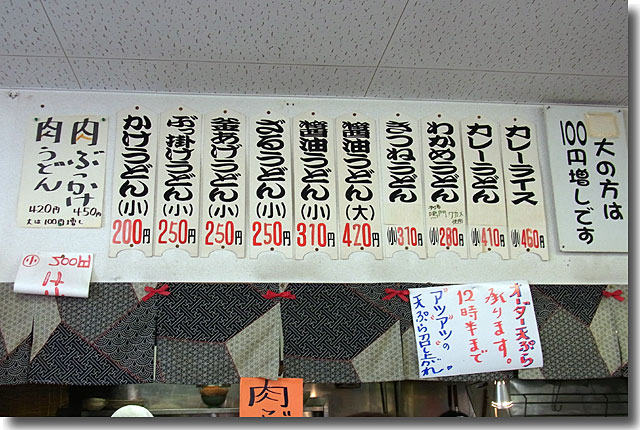 肉ぶっかけ
450円
肉うどん
420円
大は100円増し
かけうどん(小)
200円
ぶっ掛けうどん(小)
250円
釜あげうどん(小)
250円
ざるうどん(小)
250円
醤油うどん(小)
310円
醤油うどん(大)
420円
きつねうどん
小310円
わかめうどん
鳴門ワカメ使用
小280円
カレーうどん
小410円
カレーライス
小460円
大の方は
100円増しです
小 300円
オーダー天ぷら
承ります。
12時半まで
アツアツの
天ぷら召し上がれ。
肉